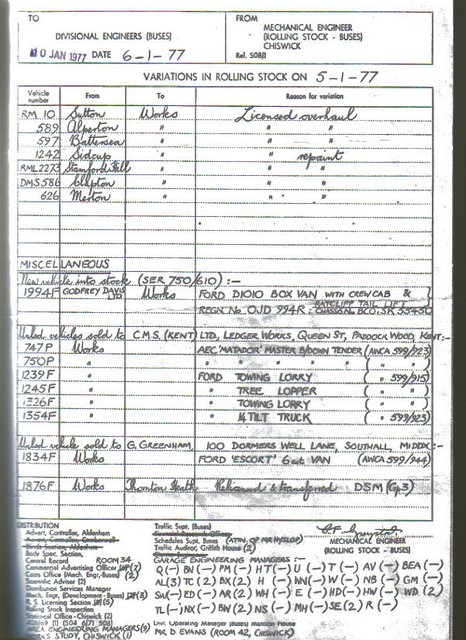 TO
DIVISIONAL ENGINEERS (BUSES)
10 JAN 1977 DATE 6-1-77
FROM
MECHANICAL ENGINEER
(ROLLING STOCK - BUSES)
CHISWICK
Ref. 508/1
VARIATIONS IN ROLLING STOCK ON 5-1-77
Vehicle number From To Reason for variation
RM 10 Sutton Works Licensed overhaul
589 Alperton " " "
597 Battersea " " "
1242 Sidcup " " repaint
RML 2273 Stamford Hill " " "
DMS 586 Clapton " " "
626 Merton " " "
MISCELLANEOUS
New vehicle into stock (SER 750/610) :-
1994F GODFREY DAVIS LTD Works FORD D1010 BOX VAN WITH CREW CAB &
RATCLIFF TAIL LIFT
REGN. No OJD 994R : CHASSIS No BCO.SR 55450
Unlicd vehicles sold to C.M.S. (KENT) LTD, LEDGER WORKS, QUEEN ST, PADDOCK WOOD, KENT:-
747P Works AEC 'MATADOR' MASTER B/DOWN TENDER (AWCA 599/923)
750P " " " " " ( " " )
1239F " FORD TOWING LORRY ( " 599/915)
1245F " " TREE LOPPER ( " " )
1326F " " TOWING LORRY ( " " )
1354F " " ¼ TILT TRUCK ( " 599/923)
Unlicd vehicle sold to G. GREENHAM, 100 DORMERS WELL LANE, SOUTHALL, MIDDX:-
1834F Works FORD 'ESCORT' 6cwt VAN (AWCA 599/944)
1876F Works Thornton Heath Relicensed & transferred DSM (Gp3)
DISTRIBUTION
Advert. Controller, Aldenham
Body Spec. Section,
Central Record ROOM 34
Commercial Advertising Officer
Costs Office (Mech. Engr.-Buses) (2)
Scientific Adviser (2)
Distribution Services Manager
Mech. Engr. (Development - Buses) (3)
R. S. Licensing Section
Rolling Stock Inspection
Traffic Supt. (Buses)
Schedules Supt. Buses (ATTN. OF MR HYSLOP)
Traffic Auditor, Griffith House (2)
MECHANICAL ENGINEER
(ROLLING STOCK - BUSES)
GARAGE ENGINEERING MANAGERS :-
Q(-) BN(-) PM(-) HT(-) U(-) T(-) AV(-) BEA(-)
AL(3) TC(2) BX(2) H(-) WN(-) W(-) NB(-) GM(-)
SW(-) ED(-) AR(2) WH(-) E(-) HD(-) HW(-) WD(2)
TL(-) NX(-) BW(2) NS(-) MH(-) SE(2) R(-)
AREA ENGINEERING MANAGERS (9)
WORKS STUDY, CHISWICK (1)
Divl. Operating Manager (Buses) Mansion House
Mr. D EVANS (ROOM 42, CHISWICK)